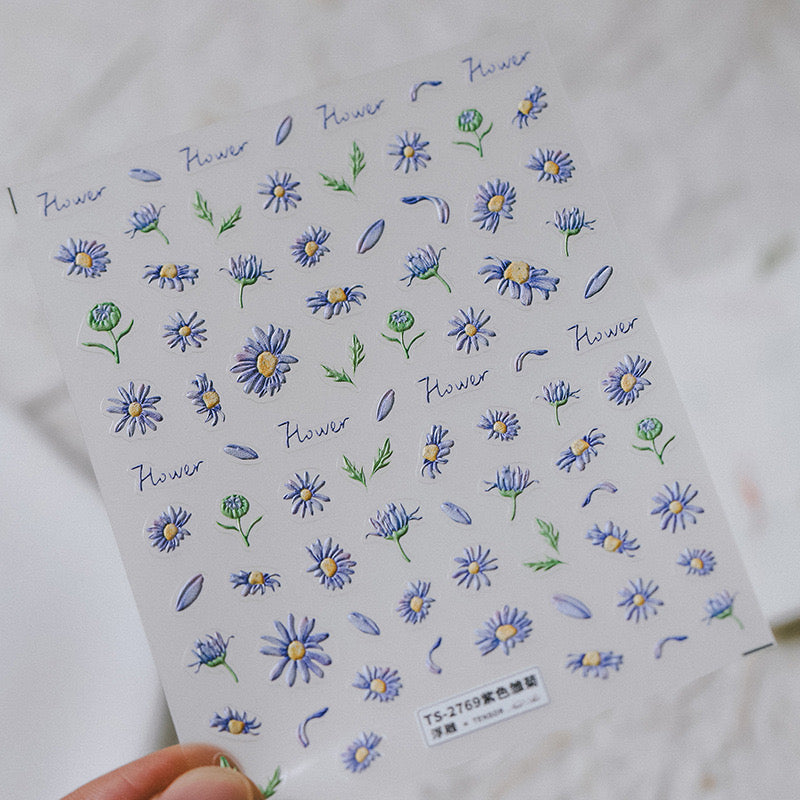 Flower
Flower
Flower
Flower
Flower
Flower
Flower
Flower
TS-2769紫色雏菊
浮雕 • TENDER